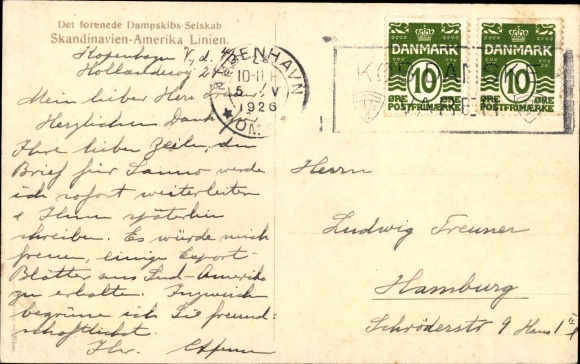 Det forenede Dampskibs-Selskab
Skandinavien-Amerika Linien.
Kopenhagen V, d. 4/5
Hollændervej 2
Mein lieber Herr
Herzlichen Dank
Ihre lieber Zeilen, den
Brief für werde
ich sofort weiterleiten
& Ihnen späterhin
schreiben. Es würde mich
freuen, einige Export-
Blätter aus Süd-Amerika
zu erhalten. Inzwischen
begrüsse ich Sie freund-
schaftlichst.
Ihr.
KØBENHAVN
10-11 F
5. V
1926
OMK
DANMARK
10
ØRE
POSTFRIMÆRKE
DANMARK
10
ØRE
POSTFRIMÆRKE
Herrn
Ludwig Treuner
Hamburg
Schröderstr 9 Haus 1